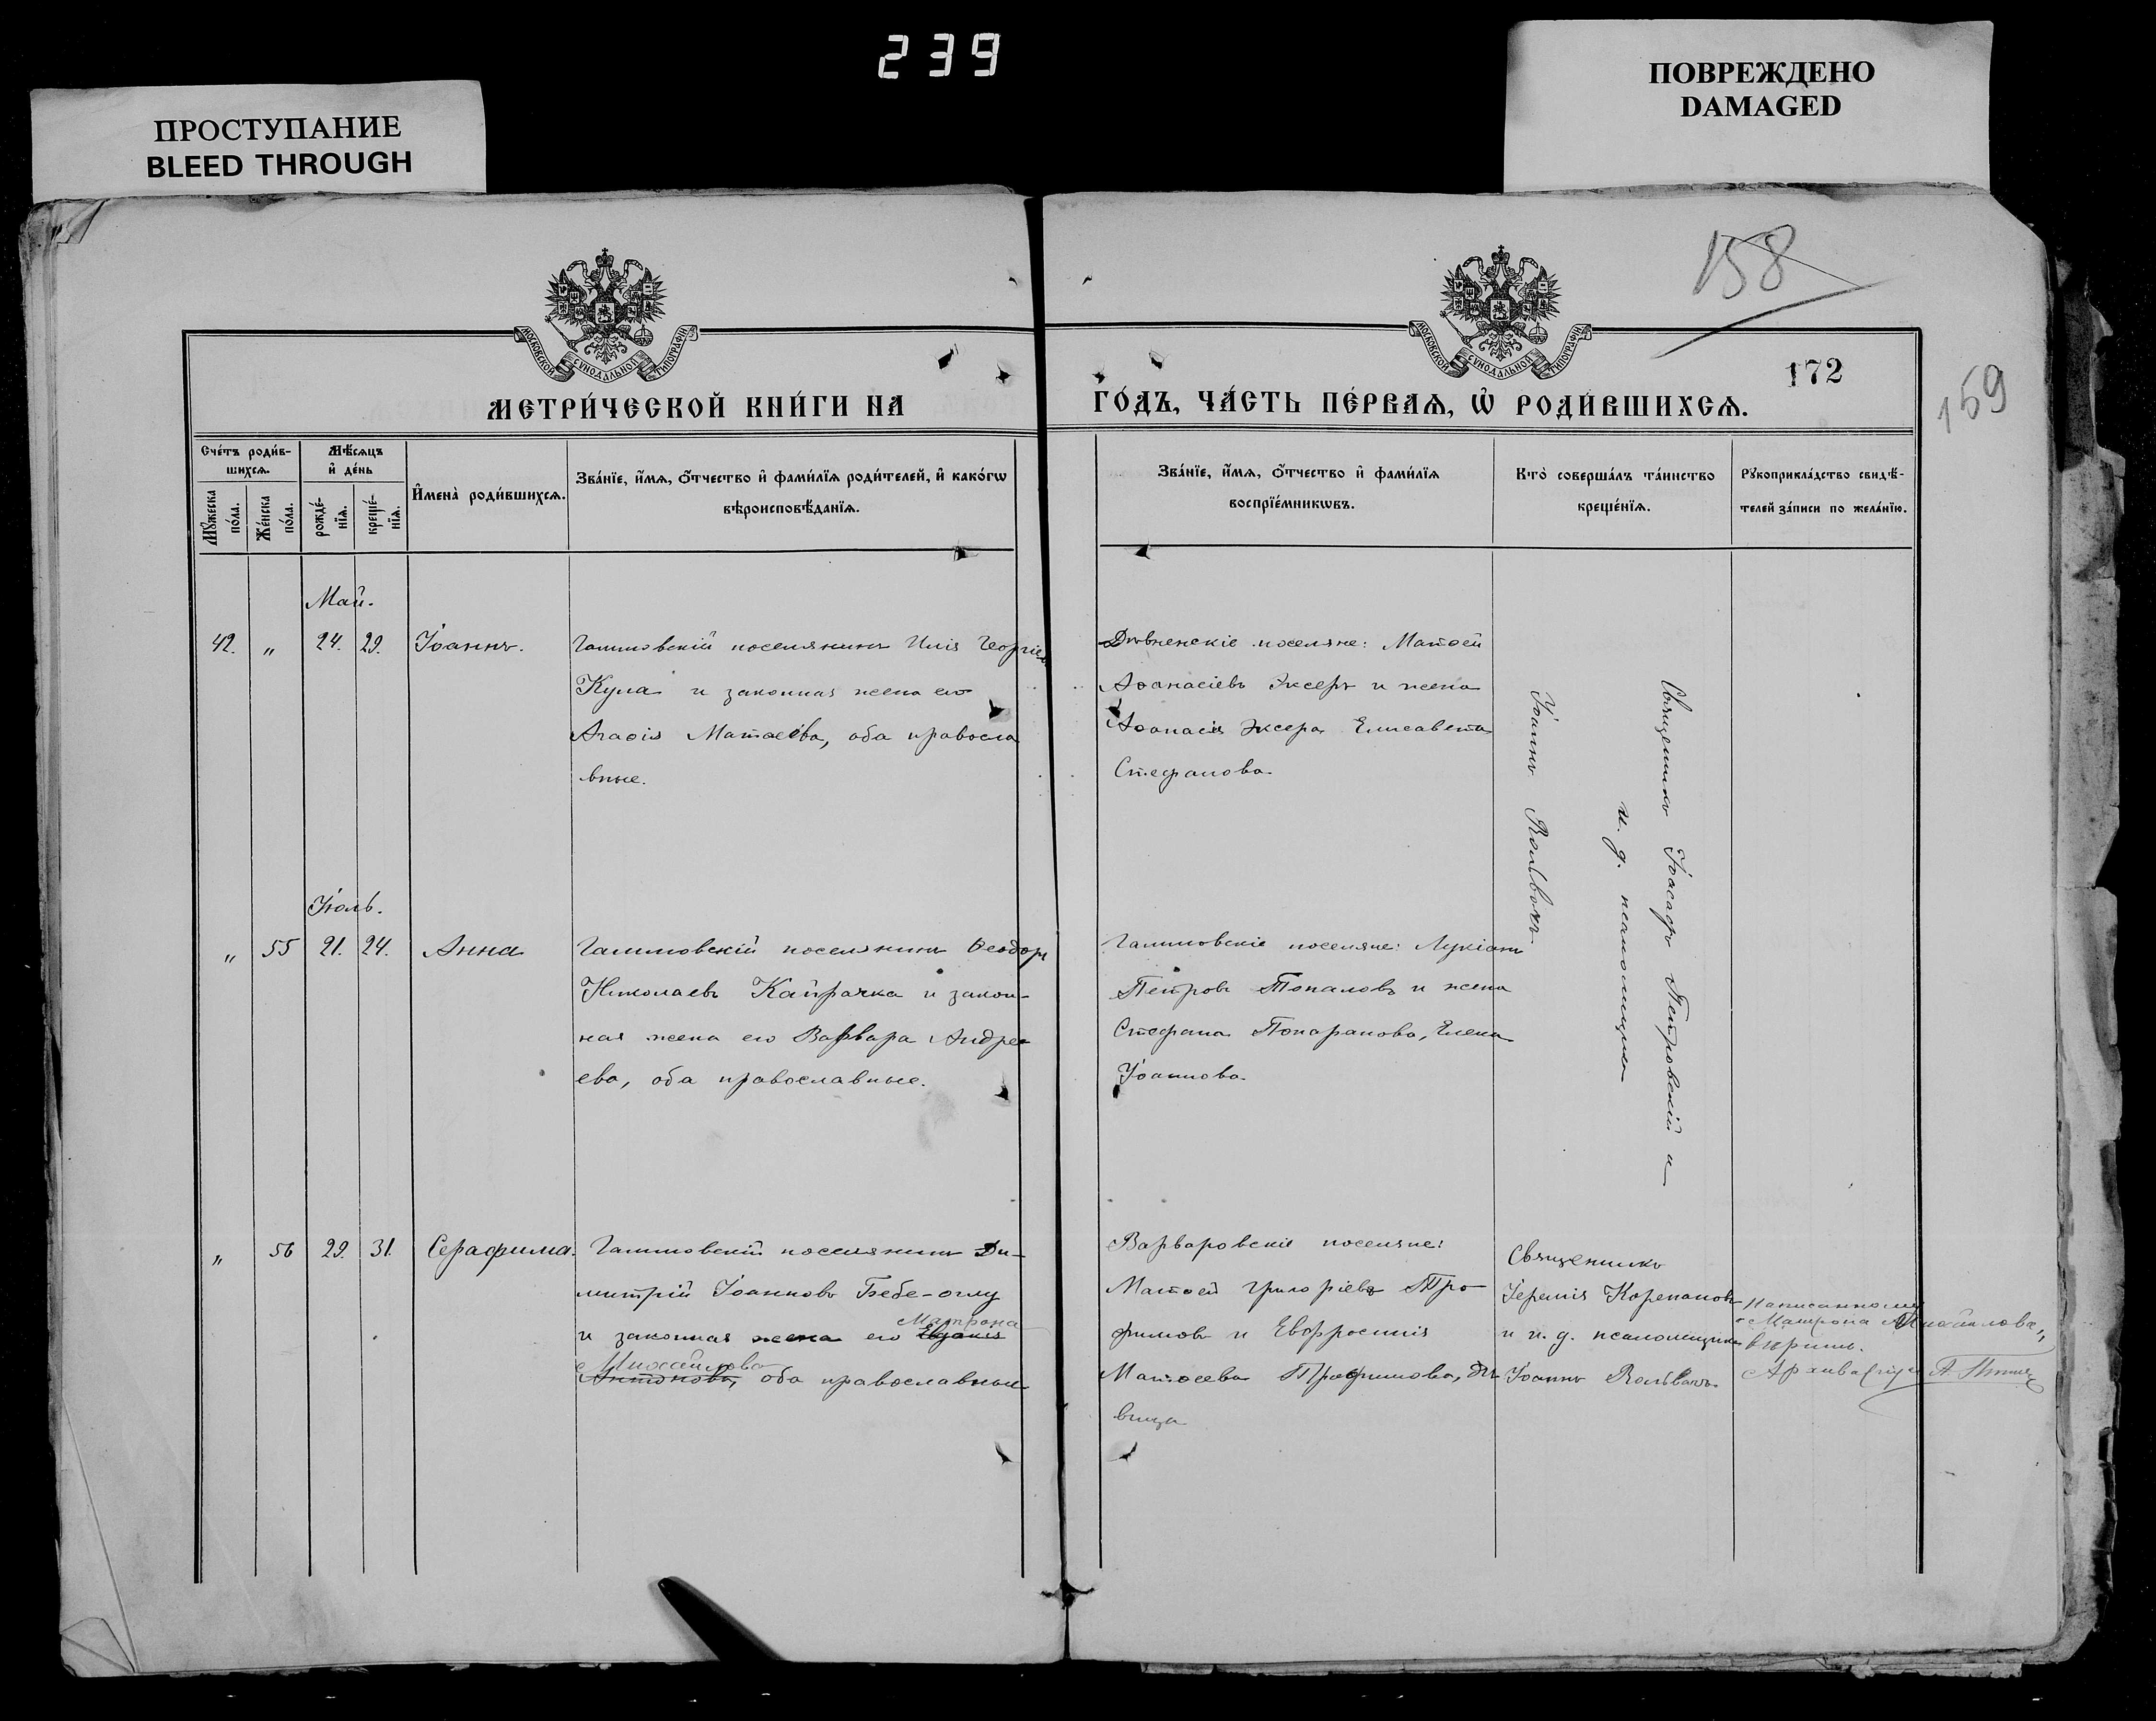 239
ПРОСТУПАНИЕ
BLEED THROUGH
ПОВРЕЖДЕНО
DAMAGED
158
172
159
МОСКОВСКОЙ СУНОДАЛЬНОЙ ТИПОГРАФІИ
МОСКОВСКОЙ СУНОДАЛЬНОЙ ТИПОГРАФІИ
МЕТРИ́ЧЕСКОЙ КНИ́ГИ НА
ГО́ДЪ, ЧА́СТЬ ПЕ́РВАѦ, Ѡ҆ РОДИ́ВШИХСѦ.
Сче́тъ роди́в-
шихсѧ.
Мѣ́сѧцъ
и҆ де́нь
Мꙋ́жеска
по́ла.
Же́нска
по́ла.
рожде́-
нїѧ.
креще́-
нїѧ.
И҆мена̀ роди́вшихсѧ.
Зва́нїе, и҆́мѧ, ѻ҆́тчество и҆ фами́лїѧ роди́телей, и҆ како́гѡ
вѣроисповѣ́данїѧ.
Зва́нїе, и҆́мѧ, ѻ҆́тчество и҆ фами́лїѧ
воспрїе́мникѡвъ.
Кто̀ соверша́лъ та́инство
креще́нїѧ.
Рꙋкоприкла́дство свидѣ́-
телей за́писи по жела́нїю.
Май.
42. „ 24. 29. Іоаннъ.
Галиловскій поселянинъ Илія Георгіевъ
Кула и законная жена его
Агафія Матѳеева, оба правосла
вные.
Дивненскіе поселяне: Матѳей
Аѳанасіевъ Эксеръ и жена
Аѳанасія Эксера Елисавета
Стефанова.
Священникъ Іоасафъ Петровскій и
и. д. псаломщика
Іоаннъ
Іюль.
„ 55 21. 24. Анна
поселянинъ Ѳеодоръ
Николаевъ Кайрачка и закон-
ная жена его Варвара Андре
ева, оба православные.
поселяне: Лукіанъ
Петровъ Топаловъ и жена
Стефана Елена
Іоаннова.
„ 56 29. 31. Серафима.
поселянинъ Ди-
митрій Іоанновъ Бебе-оглу
Матрона
и законная жена его
Михайлова
Антонова, оба православные
Варваровскіе поселяне:
Матѳей Григоріевъ Тро
фимовъ и Евфросинія
Матѳеева Трофимова, дѣ
вица
Священникъ
Іеремія Корепановъ
и и. д. псаломщика
Іоаннъ
Написанному
„Матрона Михайлова„
вѣрить.